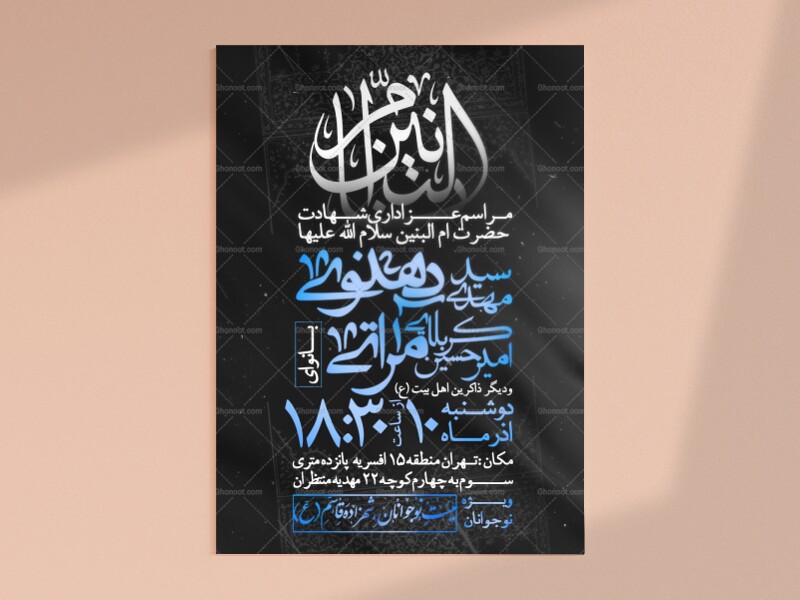 ام البنین
مراسم عزاداری شهادت
حضرت ام البنین سلام الله علیها
سید مهدی
کربلایی امیرحسین مراتی
بانوای
ودیگر ذاکرین اهل بیت (ع)
دوشنبه ۱۰ اذرماه
از ساعت ۱۸:۳۰
مکان : تهران منطقه ۱۵ افسریه پانزده متری
سوم به چهارم کوچه ۲۲ مهدیه منتظران
ویژه نوجوانان
هیئت نوجوانان شهزاده قاسم (ع)
Ghonoot.com